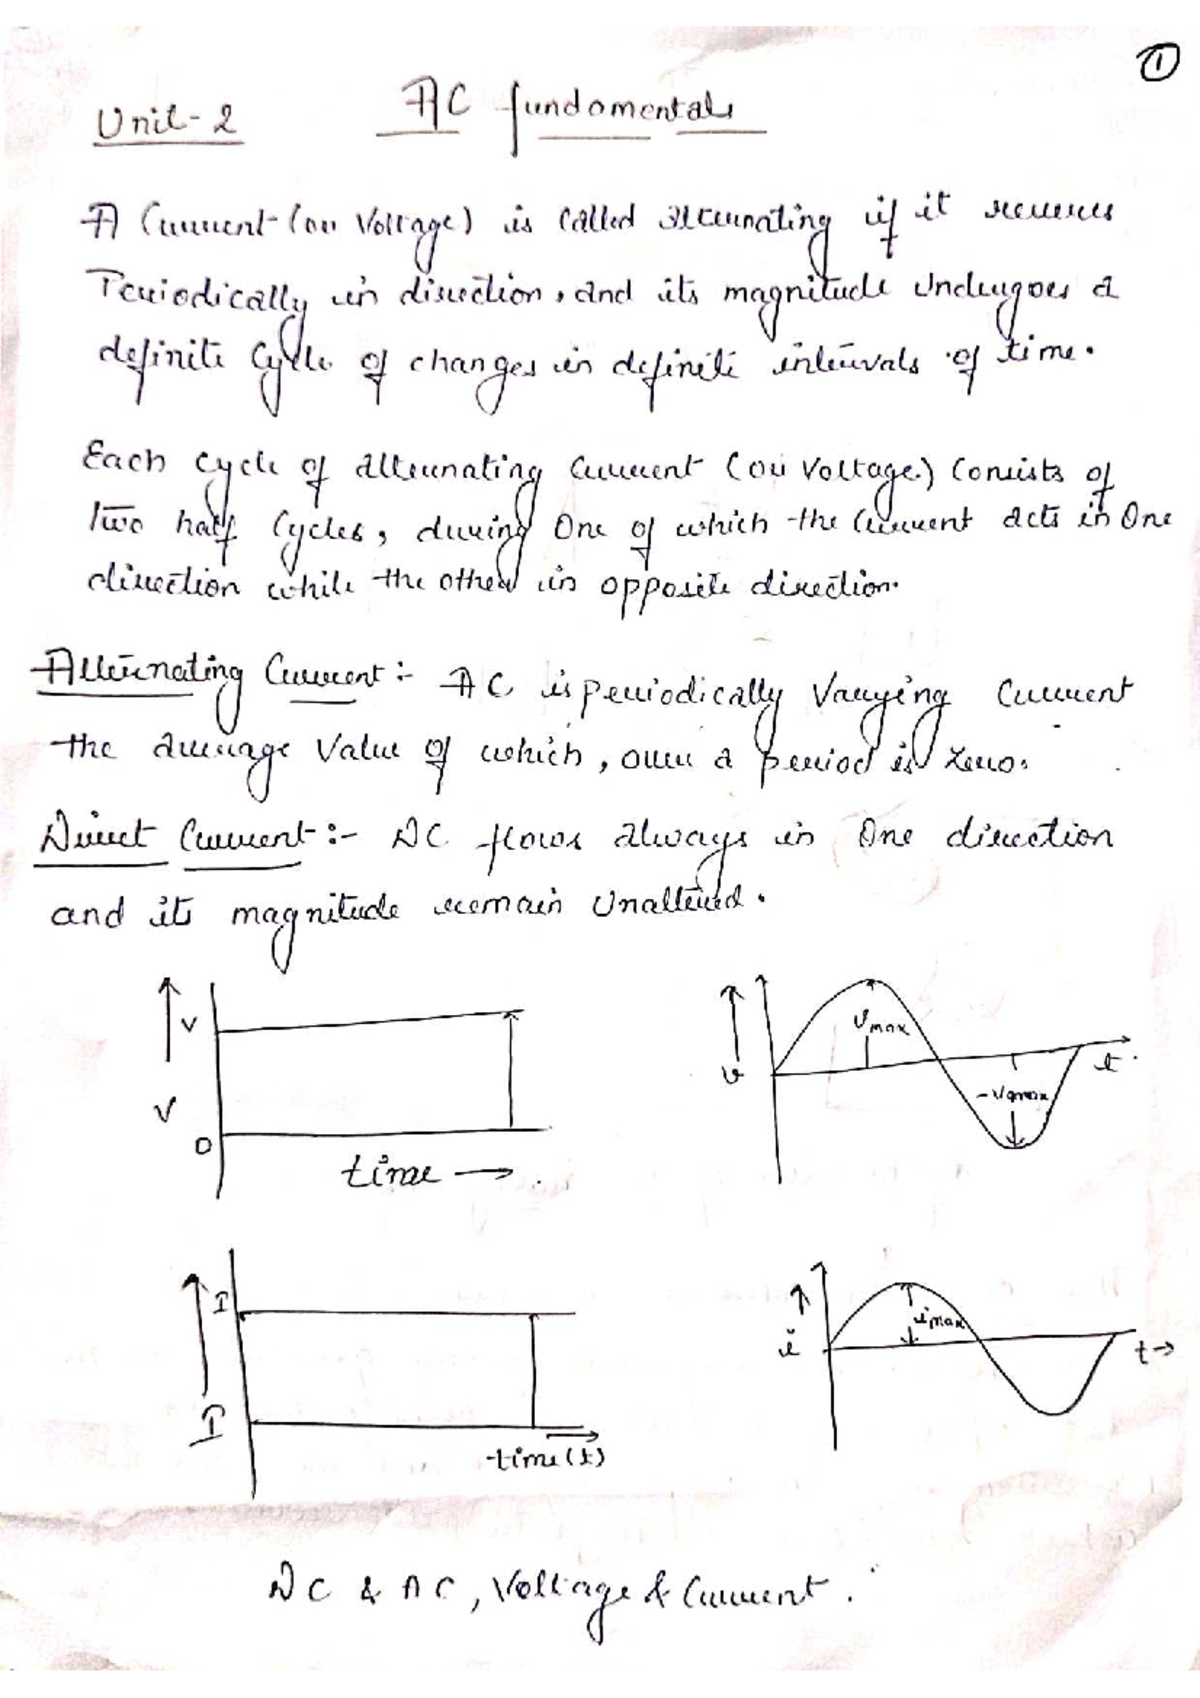 1
Unit-2 AC fundamentals
A Current (or Voltage) is called alternating if it reverses
Periodically in direction, and its magnitude undergoes a
definite Cycle of changes in definite intervals of time.
Each cycle of alternating current (or voltage) Consists of
two half cycles, during One of which the Current acts in One
direction while the other in opposite direction.
Alternating Current :- AC is periodically Varying Current
the average Value of which, over a period is Zero.
Direct Current :- DC flows always in One direction
and its magnitude remain Unaltered.
V
V
0
time →
v
Vmax
t
-Vmax
I
I
time (t)
i
imax
t→
DC & AC, Voltage & Current.